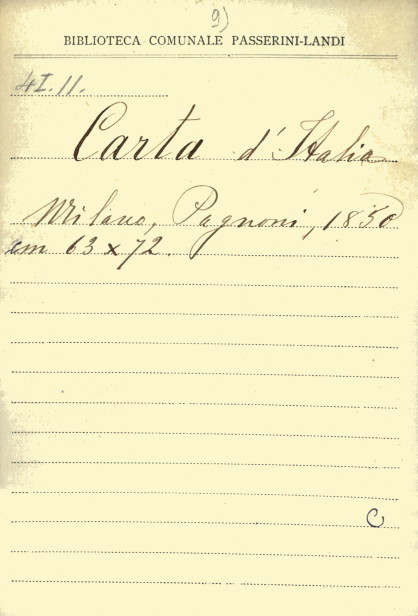 9)
BIBLIOTECA COMUNALE PASSERINI-LANDI
4I.11.
Carta d'Italia
Milano, Pagnoni, 1850
cm 63 x 72.
C